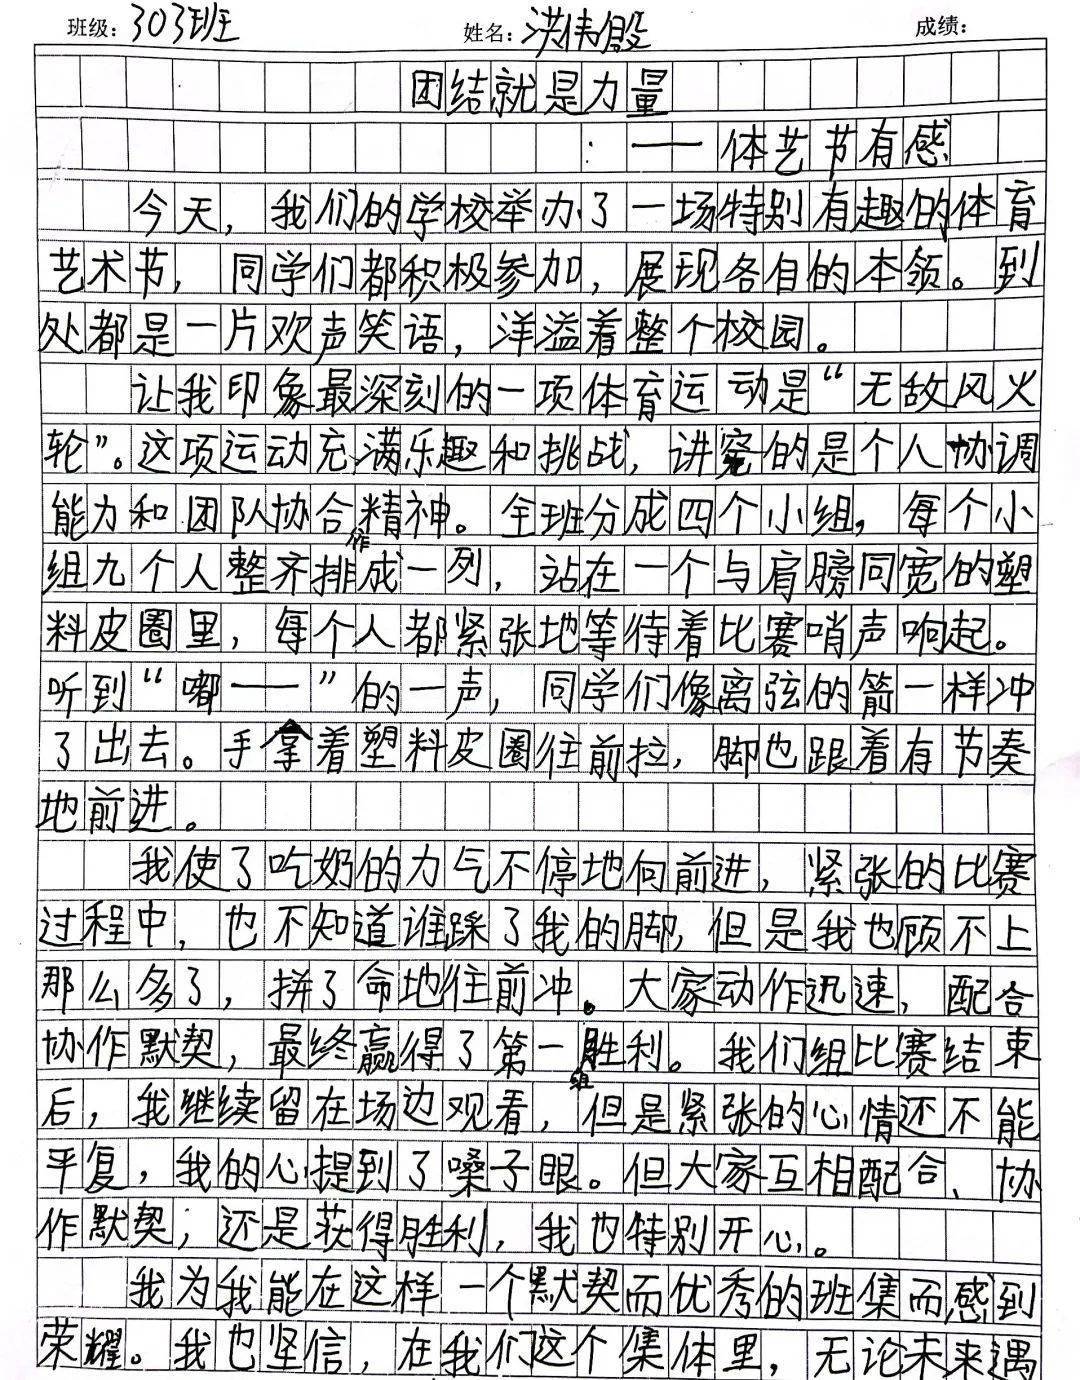 班级：303班 姓名：洪伟殷 成绩：
团结就是力量
：——体艺节有感
今天，我们的学校举办了一场特别有趣的体育
艺术节，同学们都积极参加，展现各自的本领。到
处都是一片欢声笑语，洋溢着整个校园。
让我印象最深刻的一项体育运动是“无敌风火
轮”。这项运动充满乐趣和挑战，讲究的是个人协调
能力和团队协合作精神。全班分成四个小组，每个小
组九个人整齐排成一列，站在一个与肩膀同宽的塑
料皮圈里，每个人都紧张地等待着比赛哨声响起。
听到“嘟——”的一声，同学们像离弦的箭一样冲
了出去。手拿着塑料皮圈往前拉，脚也跟着有节奏
地前进。
我使了吃奶的力气不停地向前进，紧张的比赛
过程中，也不知道谁踩了我的脚，但是我也顾不上
那么多了，拼了命地往前冲。大家动作迅速，配合
协作默契，最终赢得了第一组胜利。我们组比赛结束
后，我继续留在场边观看，但是紧张的心情还不能
平复，我的心提到了嗓子眼。但大家互相配合、协
作默契，还是获得胜利，我也特别开心。
我为我能在这样一个默契而优秀的班集而感到
荣耀。我也坚信，在我们这个集体里，无论未来遇